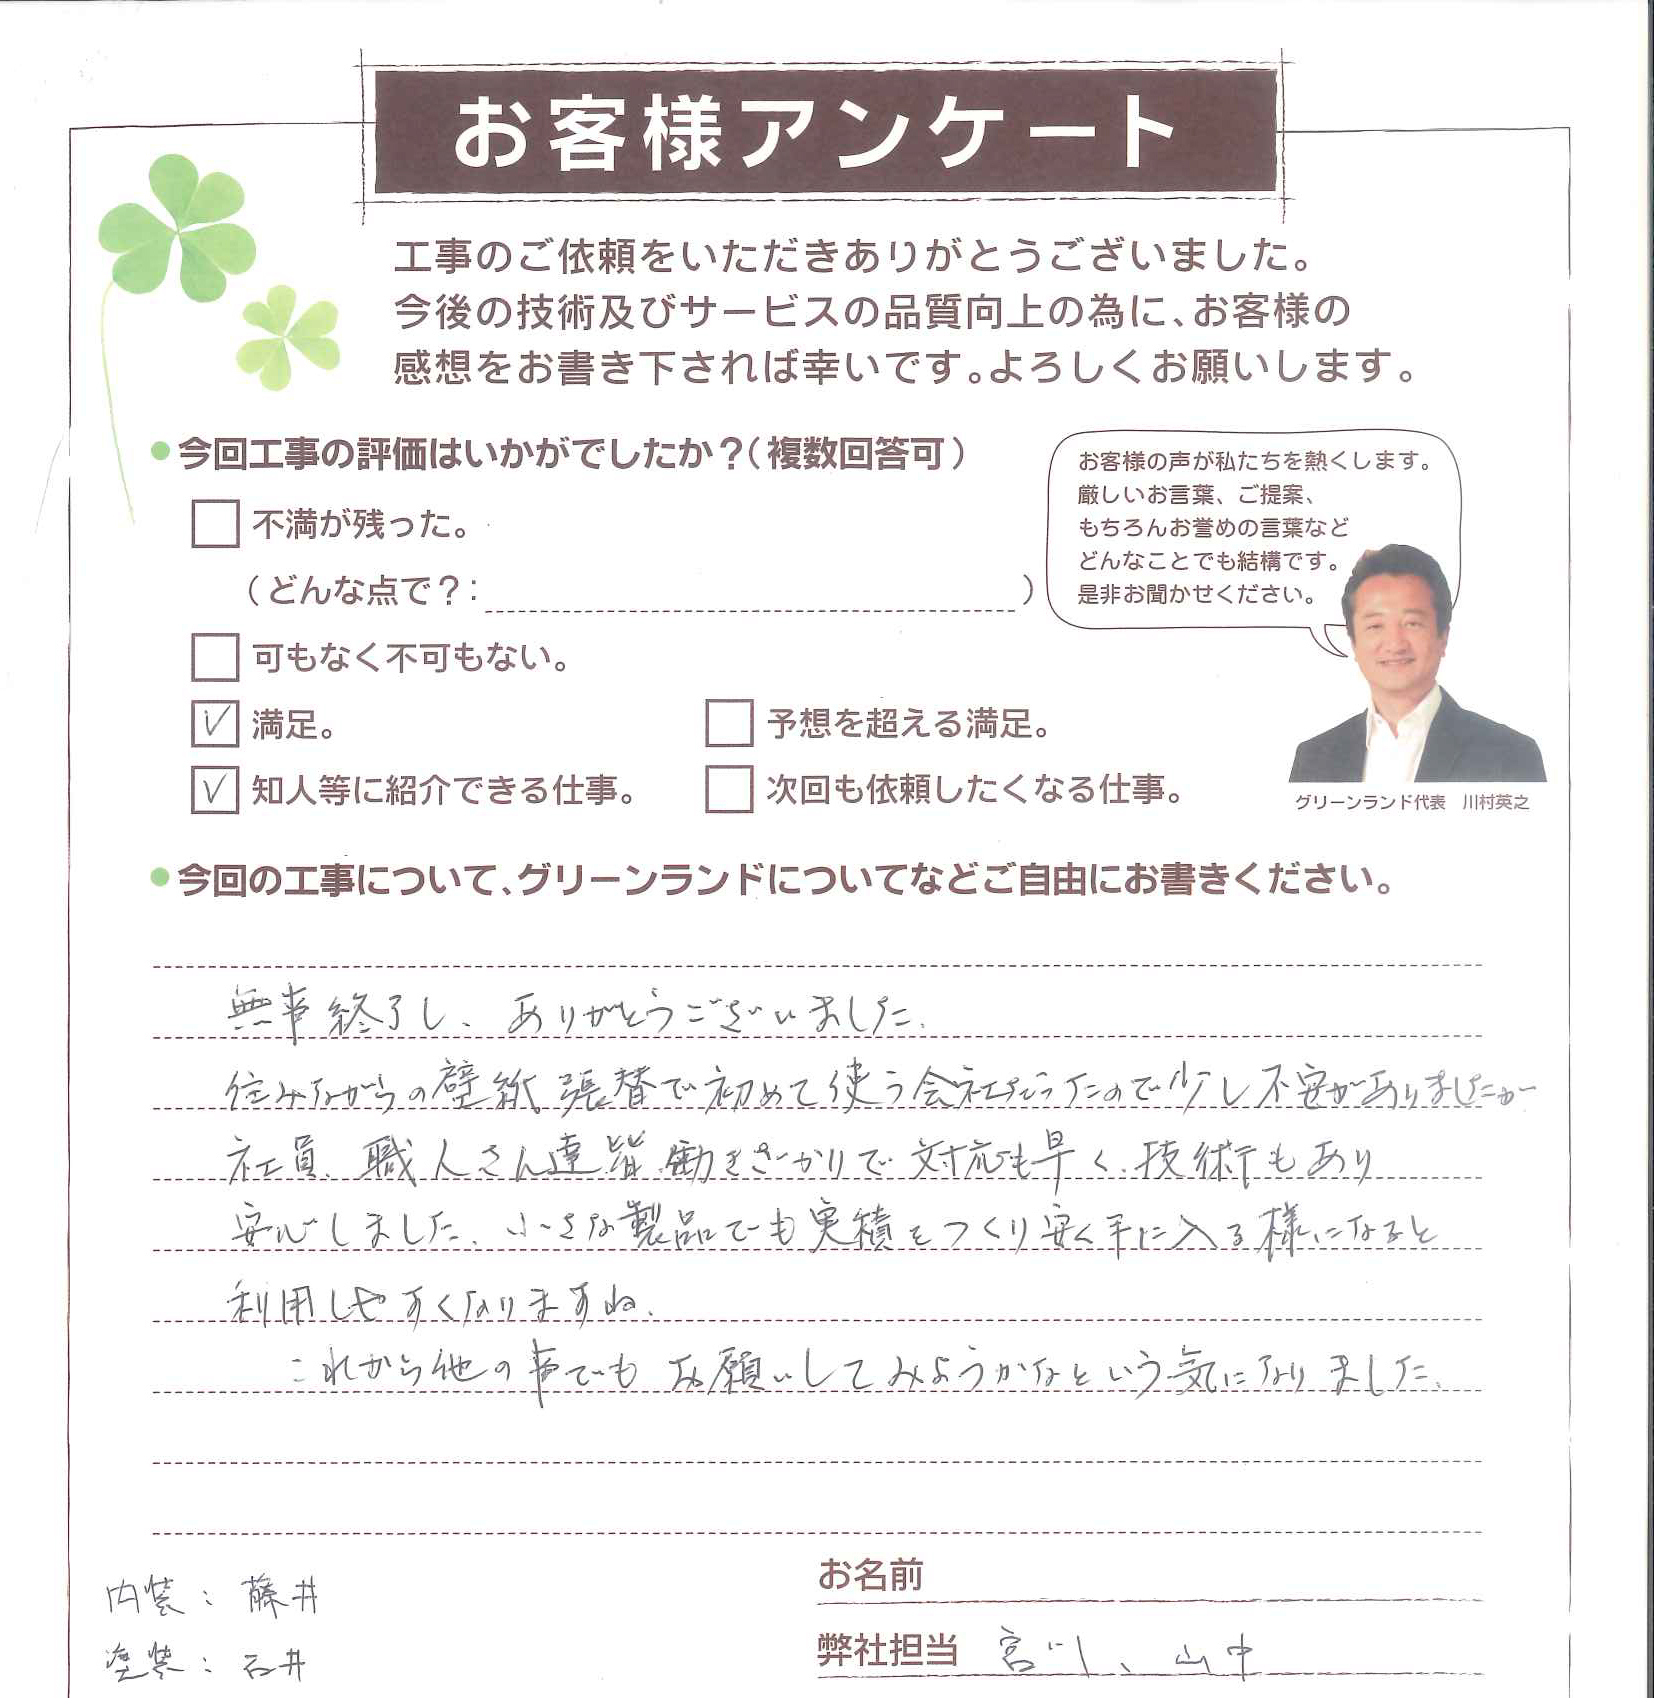 お客様アンケート
工事のご依頼をいただきありがとうございました。
今後の技術及びサービスの品質向上の為に、お客様の
感想をお書き下されば幸いです。よろしくお願いします。
今回工事の評価はいかがでしたか？（複数回答可）
不満が残った。
（どんな点で？：　）
可もなく不可もない。
満足。
予想を超える満足。
知人等に紹介できる仕事。
次回も依頼したくなる仕事。
お客様の声が私たちを熱くします。
厳しいお言葉、ご提案、
もちろんお誉めの言葉など
どんなことでも結構です。
是非お聞かせください。
グリーンランド代表　川村英之
今回の工事について、グリーンランドについてなどご自由にお書きください。
無事終了し、ありがとうございました。
住みながらの壁紙張替で初めて使う会社だったので少し不安がありましたが
社員、職人さん達皆働きざかりで対応も早く、技術もあり
安心しました。小さな製品でも実績をつくり安く手に入る様になると
利用しやすくなりますね。
これから他の事でもお願いしてみようかなという気になりました。
内装：藤井
塗装：石井
お名前
弊社担当　宮川、山中